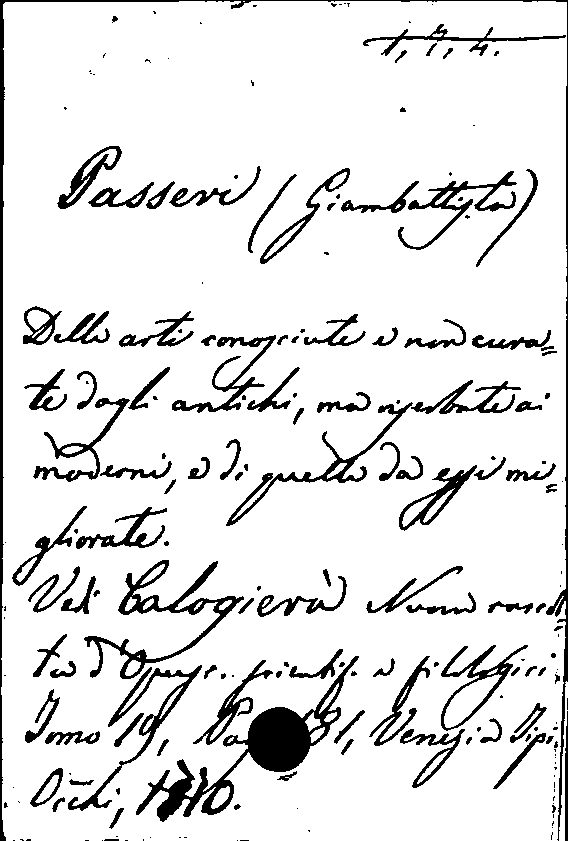 1, 7, 4.
Passeri (Giambattista)
Delle arti conosciute e non cura=
te dagli antichi, ma riserbate ai
moderni, e di quelle da essi mi=
gliorate.
Vedi Calogierà Nuova raccol=
ta d'Opusc. scientif. e filologici
Tomo 19, 31, Venezia Tipi
Occhi,